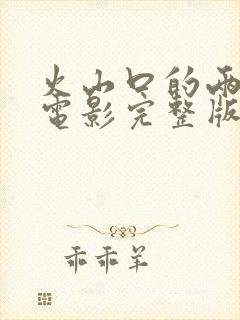 火山口的两
电影完整版
乖乖羊